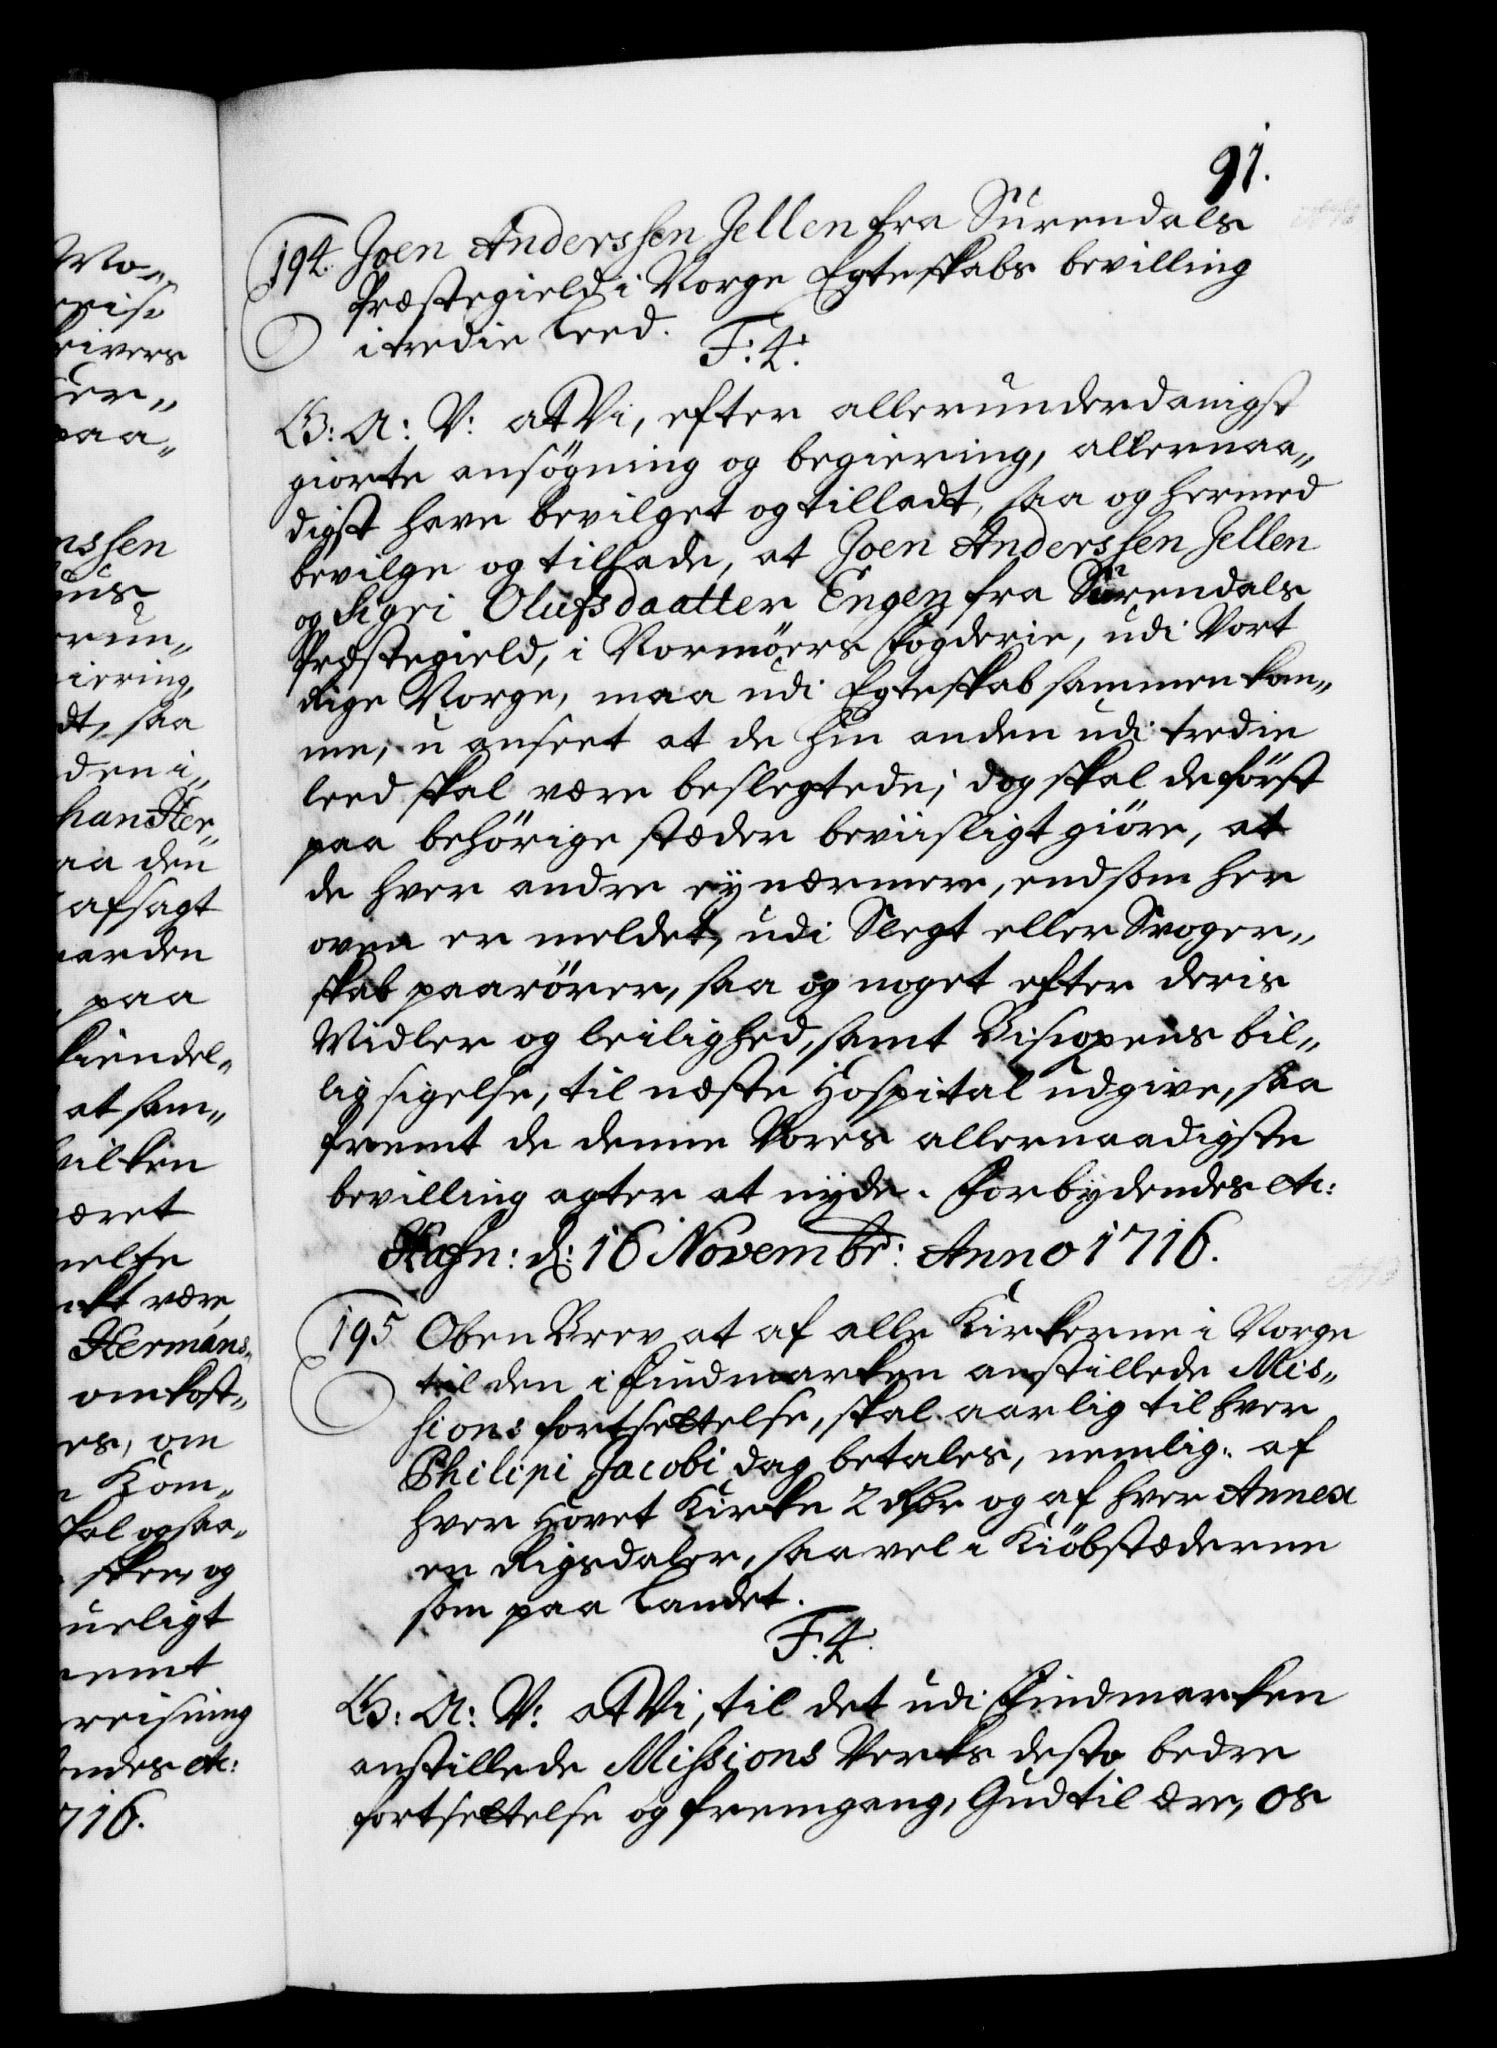 91.
194. Joen Anderssen Jellen fra Surendals
Præstegield i Norge Egteskabs bevilling
i tredie Leed.
F: 4.
G: A: V: at Vi, efter allerunderdanigst
giorte ansögning og begiering, allernaa„
digst have bevilget og tilladt, saa og hermed
bevilge og tillade, at Joen Anderssen Jellen
og Sigri Olufsdaatter Engen fra Surendals
Præstegield, i Normöers Fogderie, udi Vort
Rige Norge, maa udi Egteskab sammen kom„
me, u anseet at de hin anden udi tredie
leed skal være beslegtede; dog skal de först
paa behörige stæder beviisligt giöre, at
de hver andre ey nærmere, end som her
oven er meldet, udi Slegt eller Svoger„
skab paarörer, saa og noget efter deris
Midler og leilighed, samt Biscopens bil„
lig sigelse, til næste Hospital udgive, saa
fremt de denne Vores allernaadigste
bevilling agter at nyde. Forbydendes etc:
Hafn: d: 16 Novembr: Anno 1716.
195 Oben Brev at af alle Kirkerne i Norge
til den i Findmarken anstillede Mis„
sions fortsettelse, skal aarlig til hver
Philipi Jacobi dag betales, nemlig: af
hver Hovet Kirke 2 Rdr og af hver Annex
en Rigsdaler, saavel i Kiöbstæderne
som paa Landet.
F. 4.
G: A: V: at Vi, til det udi Findmarken
anstillede Missions Verks desto bedre
fortsettelse og fremgang, Gud til ære, os
nssen
iering,
dt, saa
den i„
han Her„
aa den
afsagt
arden
paa
kiendel„
at sam„
vilken
æret
være
Hermans„
omkost„
es, om
Kom„
skal ogsaa„
og
ueligt
emt
viisning
endes etc:
716.